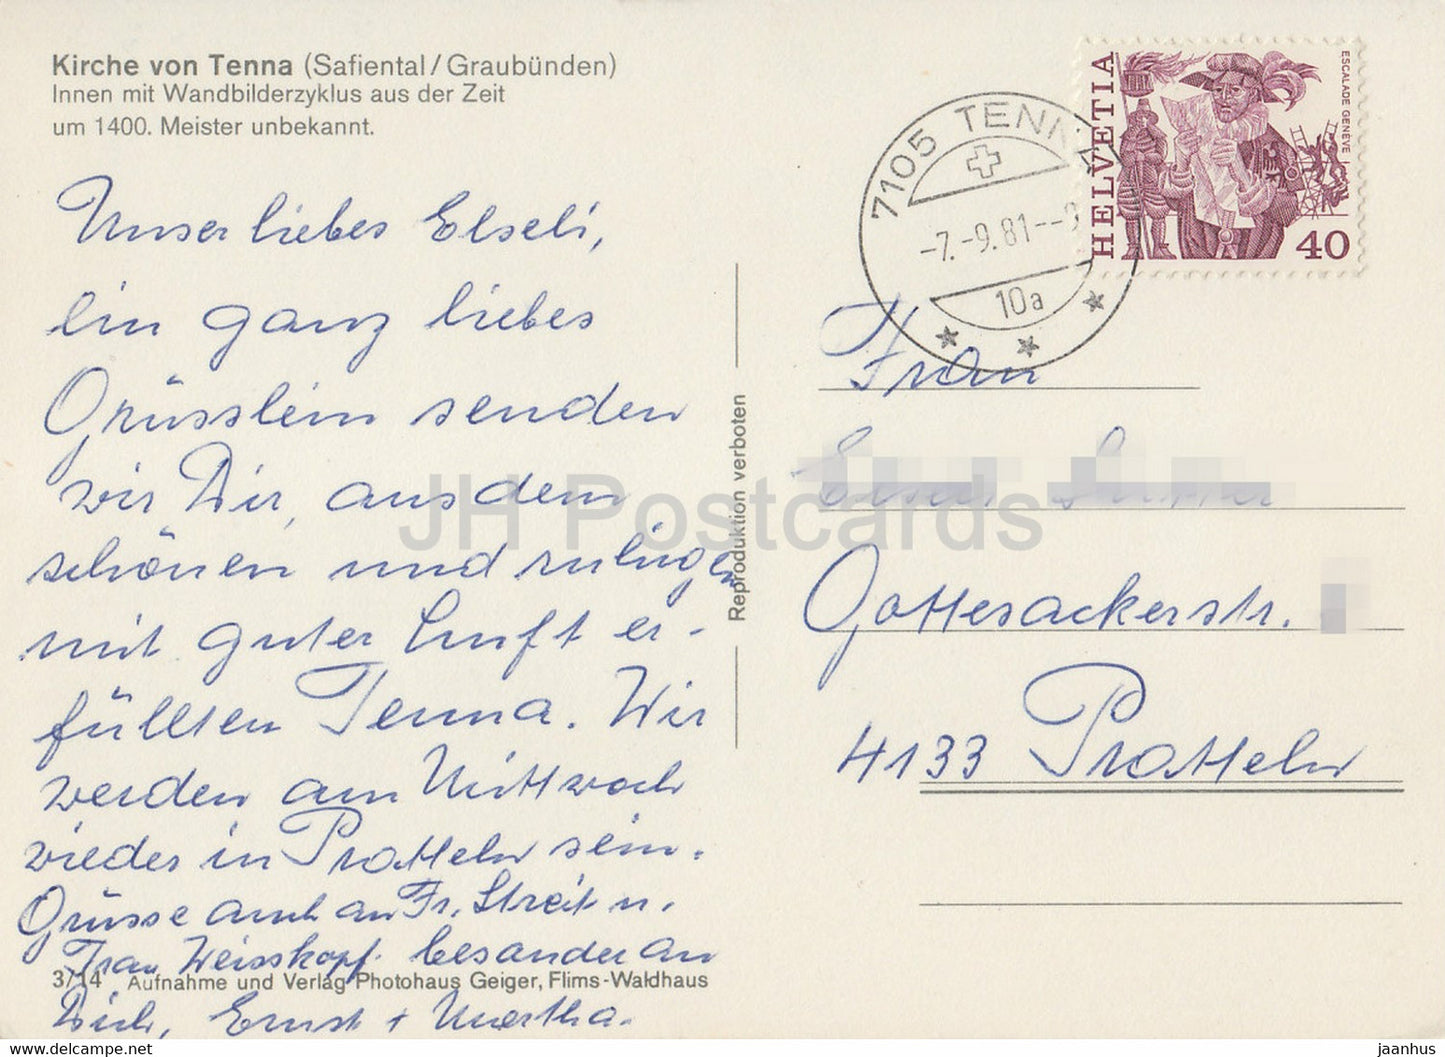 Kirche von Tenna (Safiental/Graubünden)
Innen mit Wandbilderzyklus aus der Zeit
um 1400. Meister unbekannt.
Unser liebes Elseli,
ein ganz liebes
Grüsslein senden
wir Dir, aus dem
schönen und ruhigen
mit guter Luft er-
füllten Tenna. Wir
werden am Mittwoch
wieder in Pratteln sein.
Grüsse auch an Fr. Streit u.
Frau Weisskopf. besonder an
Dich, Ernst + Martha.
3/14 Aufnahme und Verlag Photohaus Geiger, Flims-Waldhaus
Reproduktion verboten
JH Postcards
7105 TENNA
-7.-9.81--9
10a
HELVETIA
ESCALADE GENÈVE
40
Frau
Gottesackerstr.
4133 Pratteln
jaanhus.com